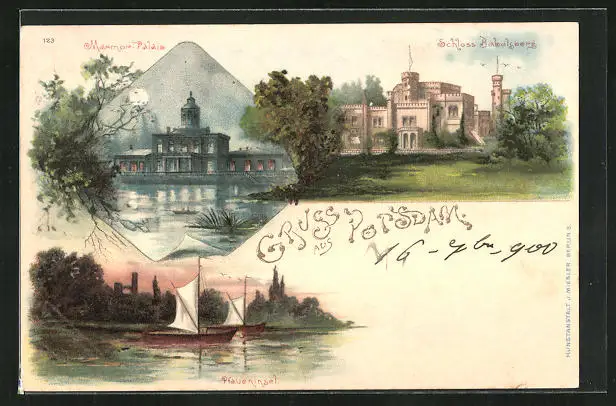 123
Marmor-Palais
Schloss Babelsberg
GRUSS AUS POTSDAM.
16-7bre-900
Pfaueninsel
KUNSTANSTALT J. MIESLER, BERLIN S.